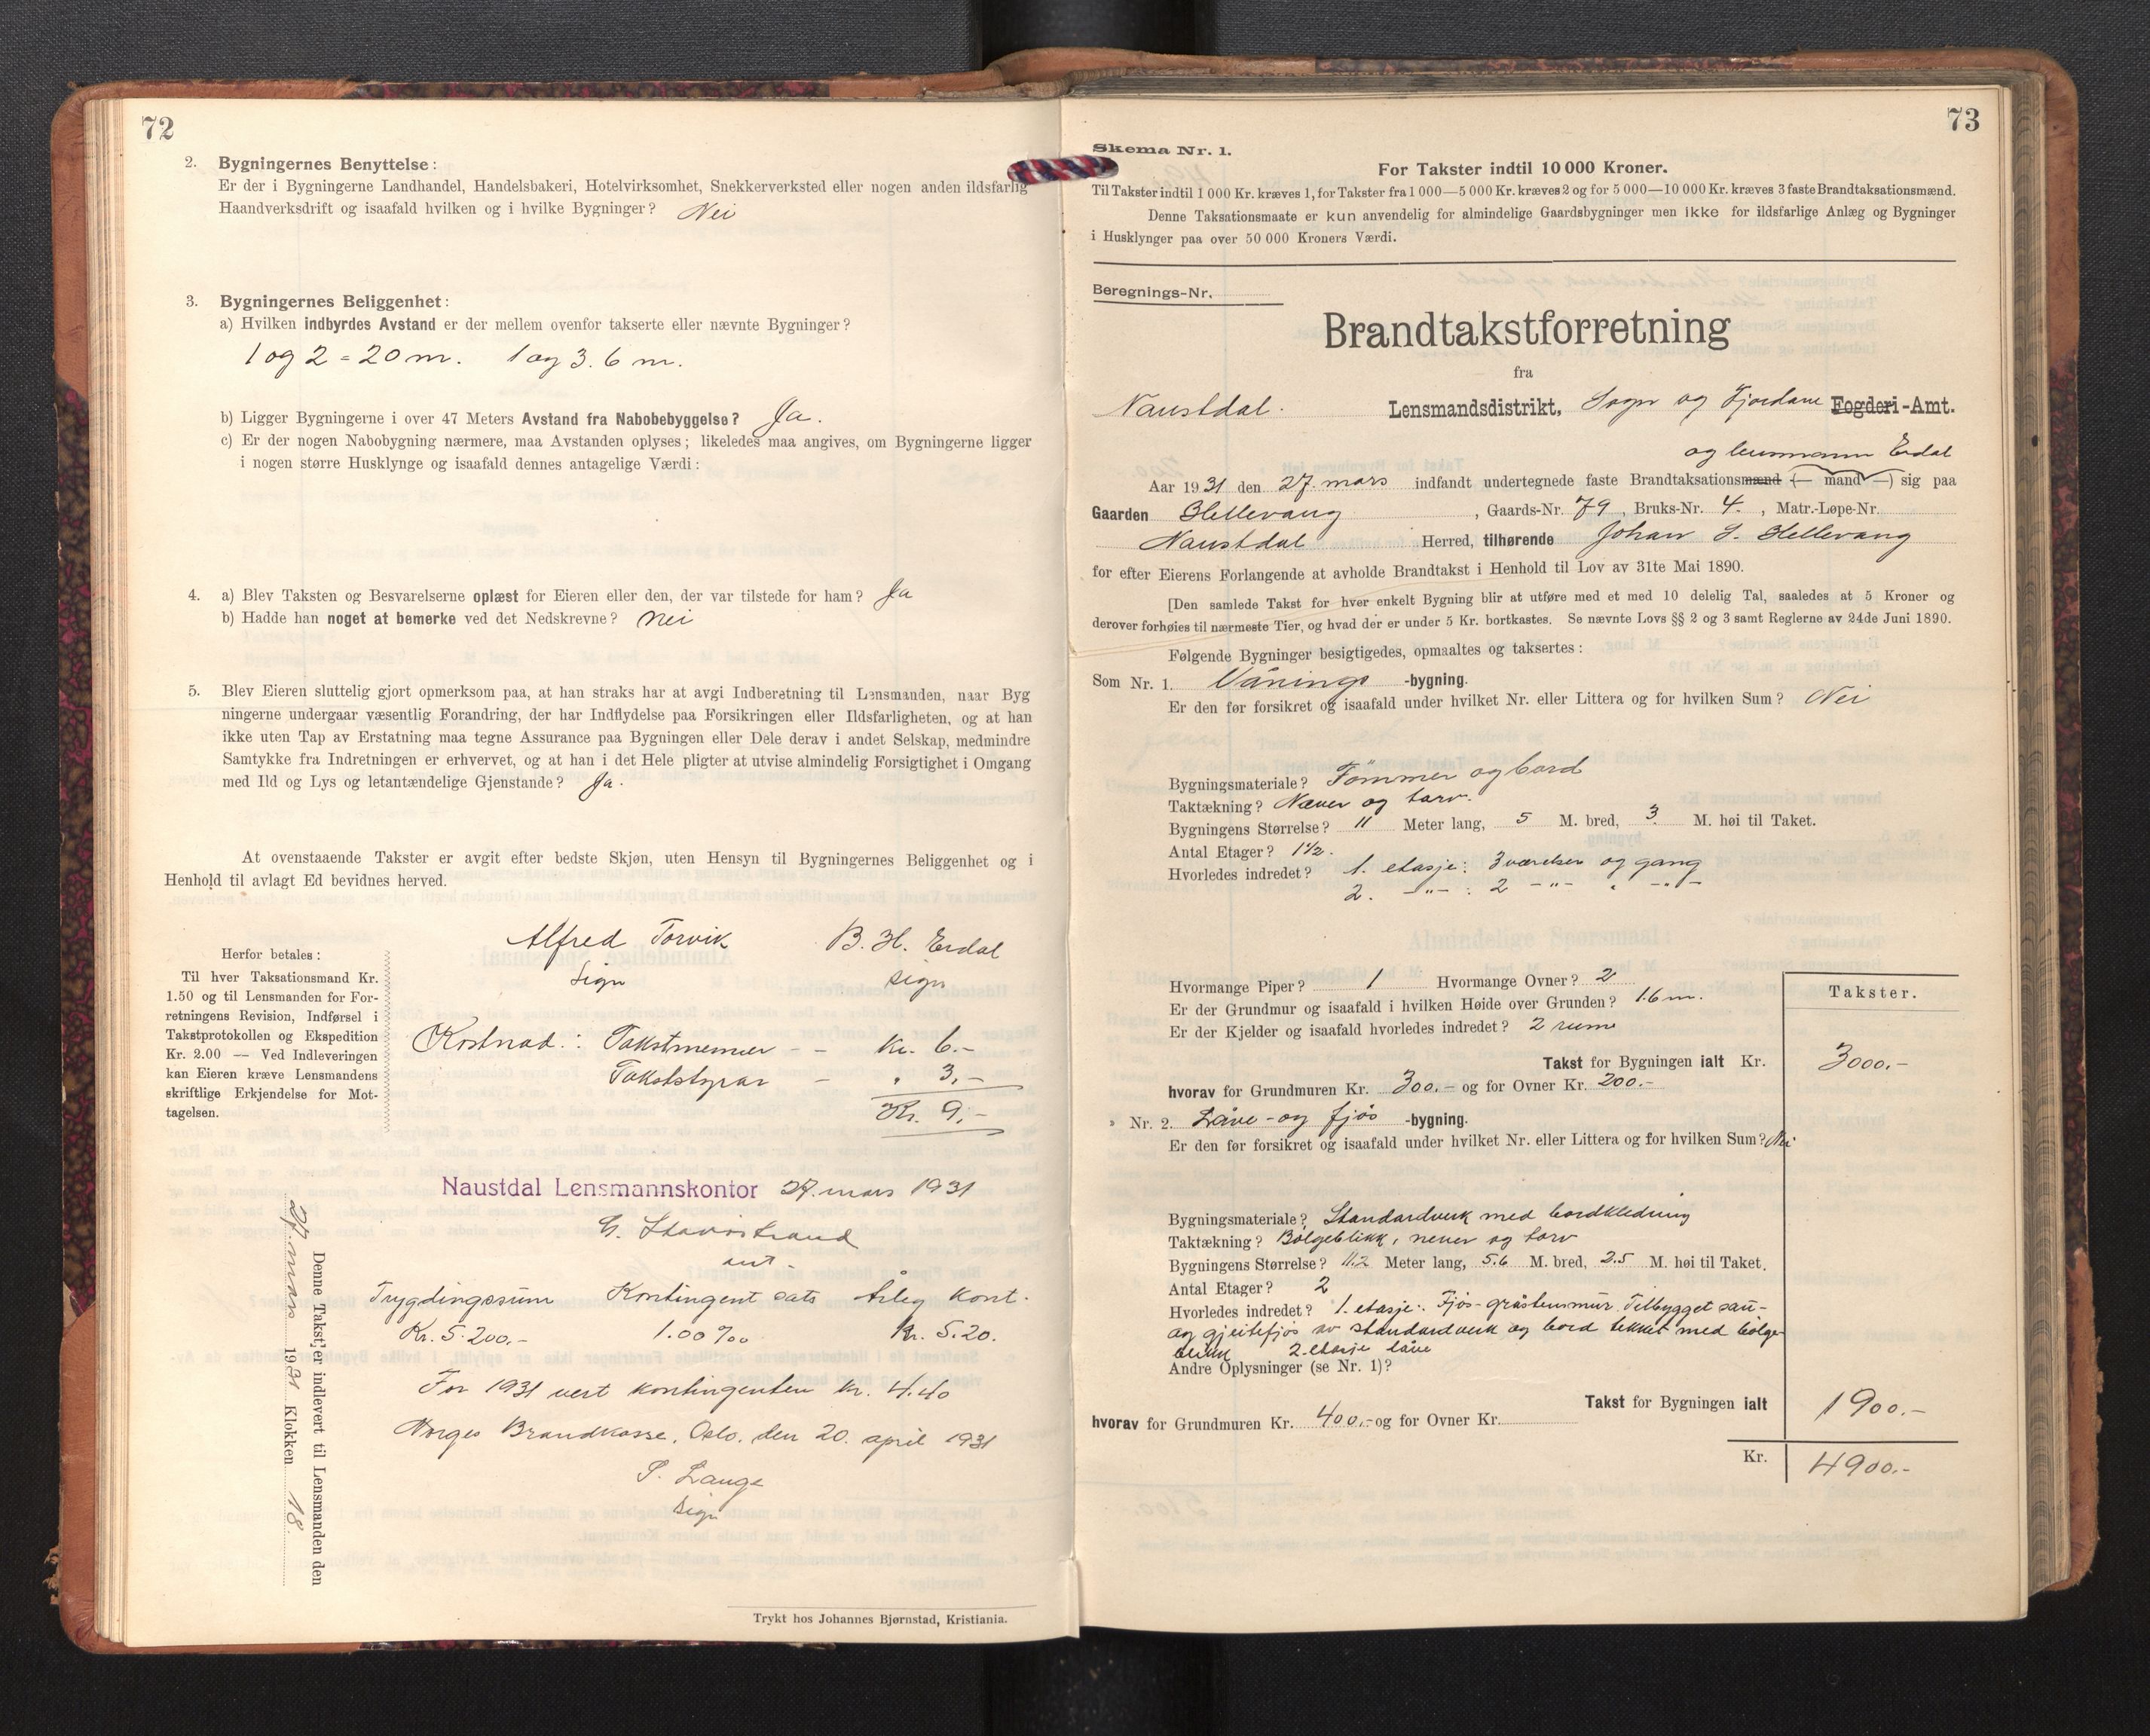 72
2. Bygningernes Benyttelse:
Er der i Bygningerne Landhandel, Handelsbakeri, Hotelvirksomhet, Snekkerverksted eller nogen anden ildsfarlig
Haandverksdrift og isaafald hvilken og i hvilke Bygninger? Nei
3. Bygningernes Beliggenhet:
a) Hvilken indbyrdes Avstand er der mellem ovenfor takserte eller nævnte Bygninger?
1 og 2 = 20 m. 1 og 3. 6 m.
b) Ligger Bygningerne i over 47 Meters Avstand fra Nabobebyggelse? Ja.
c) Er der nogen Nabobygning nærmere, maa Avstanden oplyses; likeledes maa angives, om Bygningerne ligger
i nogen større Husklynge og isaafald dennes antagelige Værdi:
4. a) Blev Taksten og Besvarelserne oplæst for Eieren eller den, der var tilstede for ham? Ja
b) Hadde han noget at bemerke ved det Nedskrevne? Nei
5. Blev Eieren sluttelig gjort opmerksom paa, at han straks har at avgi Indberetning til Lensmanden, naar Byg
ningerne undergaar væsentlig Forandring, der har Indflydelse paa Forsikringen eller Ildsfarligheten, og at han
ikke uten Tap av Erstatning maa tegne Assurance paa Bygningen eller Dele derav i andet Selskap, medmindre
Samtykke fra Indretningen er erhvervet, og at han i det Hele pligter at utvise almindelig Forsigtighet i Omgang
med Ild og Lys og letantændelige Gjenstande? Ja.
At ovenstaaende Takster er avgit efter bedste Skjøn, uten Hensyn til Bygningernes Beliggenhet og i
Henhold til avlagt Ed bevidnes herved.
Alfred Torvik B. H. Erdal
Sign Sign
Herfor betales:
Til hver Taksationsmand Kr.
1.50 og til Lensmanden for For-
retningens Revision, Indførsel i
Takstprotokollen og Ekspedition
Kr. 2.00 — Ved Indleveringen
kan Eieren kræve Lensmandens
skriftlige Erkjendelse for Mot-
tagelsen.
Kostnad: Takstmenner - - Kr. 6.-
Takststyrar - " 3,-
Kr. 9,-
Naustdal Lensmannskontor 27. mars 1931
G. Stavøstrand
aut.
Trygdingssum Kontingent sats Årleg kont.
Kr. 5.200,- 1.00 ‰ Kr. 5.20.
For 1931 vert kontingenten kr. 4.40
Norges Brandkasse, Oslo, den 20. april 1931
S. Lange
Sign
Denne Takst er indlevert til Lensmanden den
27. mars 1931 Klokken 18.
Trykt hos Johannes Bjørnstad, Kristiania.
73
Skema Nr. 1.
For Takster indtil 10 000 Kroner.
Til Takster indtil 1 000 Kr. kræves 1, for Takster fra 1 000—5 000 Kr. kræves 2 og for 5 000—10 000 Kr. kræves 3 faste Brandtaksationsmænd.
Denne Taksationsmaate er kun anvendelig for almindelige Gaardsbygninger men ikke for ildsfarlige Anlæg og Bygninger
i Husklynger paa over 50 000 Kroners Værdi.
Beregnings-Nr.
Brandtakstforretning
fra
Naustdal. Lensmandsdistrikt, Sogn og Fjordane Fogderi-Amt.
og lensmann Erdal
Aar 1931 den 27. mars indfandt undertegnede faste Brandtaksationsmænd (— mand —) sig paa
Gaarden Hellevang, Gaards-Nr. 79, Bruks-Nr. 4., Matr.-Løpe-Nr.
Naustdal Herred, tilhørende Johan S. Hellevang
for efter Eierens Forlangende at avholde Brandtakst i Henhold til Lov av 31te Mai 1890.
[Den samlede Takst for hver enkelt Bygning blir at utføre med et med 10 delelig Tal, saaledes at 5 Kroner og
derover forhøies til nærmeste Tier, og hvad der er under 5 Kr. bortkastes. Se nævnte Lovs §§ 2 og 3 samt Reglerne av 24de Juni 1890.
Følgende Bygninger besigtigedes, opmaaltes og taksertes:
Som Nr. 1. Vånings -bygning.
Er den før forsikret og isaafald under hvilket Nr. eller Littera og for hvilken Sum? Nei
Bygningsmateriale? Tømmer og bord
Taktækning? Næver og torv.
Bygningens Størrelse? 11 Meter lang, 5 M. bred, 3 M. høi til Taket.
Antal Etager? 1½.
Hvorledes indredet? 1. etasje: 3 værelser og gang
2. -"- : 2 -"- " -"-
Hvormange Piper? 1 Hvormange Ovner? 2
Er der Grundmur og isaafald i hvilken Høide over Grunden? 1.6 m.
Er der Kjelder og isaafald hvorledes indredet? 2 rum
Takster.
Takst for Bygningen ialt Kr. 3000.-
hvorav for Grundmuren Kr. 300.- og for Ovner Kr. 200.-
" Nr. 2. Låve- og fjøs -bygning.
Er den før forsikret og isaafald under hvilket Nr. eller Littera og for hvilken Sum? Nei
Bygningsmateriale? Standardverk med bordkledning
Taktækning? Bølgeblikk, never og torv
Bygningens Størrelse? 11.2 Meter lang, 5.6 M. bred, 2.5 M. høi til Taket.
Antal Etager? 2
Hvorledes indredet? 1. etasje: Fjøs - gråstensmur. Tilbygget sau-
og gjeitefjøs av standardverk og bord tekket med bølge-
blikk 2. etasje låve
Andre Oplysninger (se Nr. 1)?
Takst for Bygningen ialt 1900.-
hvorav for Grundmuren Kr. 400.- og for Ovner Kr.
Kr. 4900.-